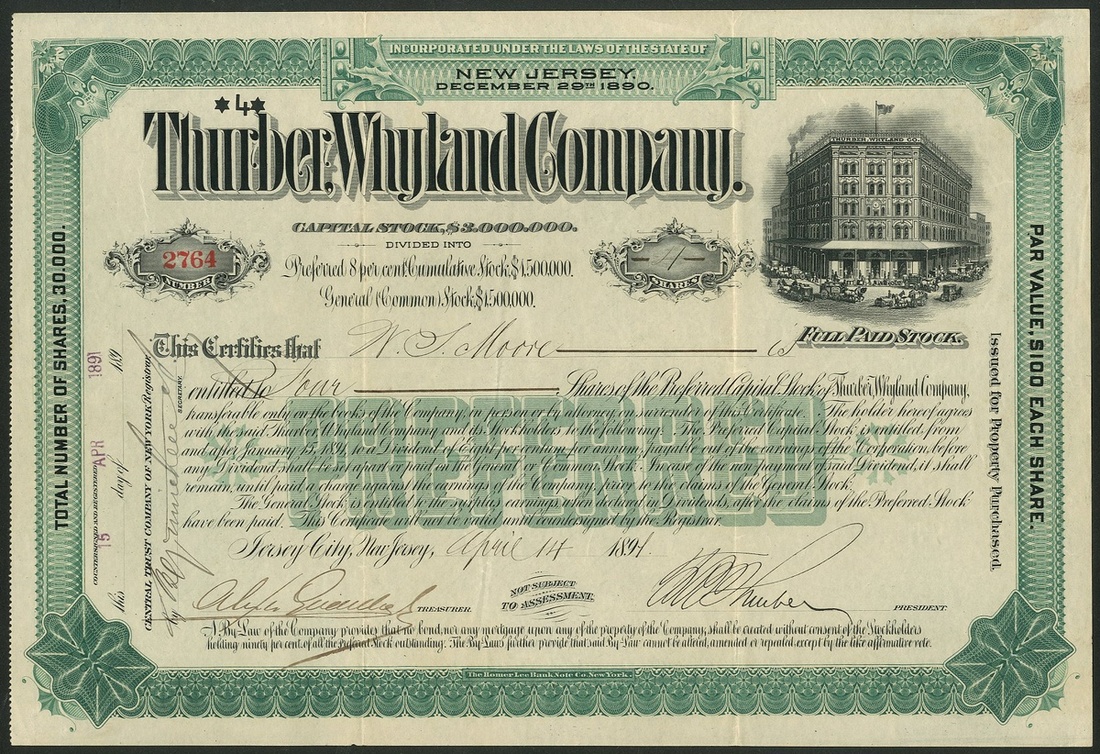 INCORPORATED UNDER THE LAWS OF THE STATE OF
NEW JERSEY.
DECEMBER 29TH 1890.
4
Thurber, Whyland Company.
THURBER, WHYLAND CO.
CAPITAL STOCK, $3.000.000.
DIVIDED INTO
Preferred 8 per cent. Cumulative Stock, $1,500,000.
General (Common) Stock, $1,500,000.
2764
NUMBER
4
SHARES
FULL PAID STOCK.
This Certifies that W. S. Moore is
entitled to Four Shares of the Preferred Capital Stock of Thurber, Whyland Company,
transferable only on the books of the Company, in person or by attorney, on surrender of this Certificate. The holder hereof agrees
with the said Thurber, Whyland Company and its Stockholders to the following: The Preferred Capital Stock is entitled from
and after January 15, 1891, to a Dividend of Eight per centum per annum, payable out of the earnings of the Corporation, before
any Dividend shall be set apart or paid on the General or Common Stock. In case of the non payment of said Dividend, it shall
remain, until paid, a charge against the earnings of the Company, prior to the claims of the General Stock.
The General Stock is entitled to the surplus earnings, when declared as Dividends, after the claims of the Preferred Stock
have been paid. This Certificate will not be valid until countersigned by the Registrar.
PREFERRED
Jersey City, New Jersey, April 14 1891.
TREASURER.
NOT SUBJECT
TO ASSESSMENT.
Thurber
PRESIDENT.
A By-Law of the Company provides that no bond, nor any mortgage upon any of the property of the Company, shall be created without consent of the Stockholders
holding ninety per cent. of all the Preferred Stock outstanding. The By-Laws further provide that said By-Law cannot be altered, amended or repealed, except by the like affirmative vote.
The Homer Lee Bank Note Co. New York.
TOTAL NUMBER OF SHARES, 30,000.
COUNTERSIGNED AND REGISTERED
this 15 day of APR 1891 189
CENTRAL TRUST COMPANY OF NEW YORK, Registrar,
by
SECRETARY
Issued for Property Purchased.
PAR VALUE, $100 EACH SHARE.